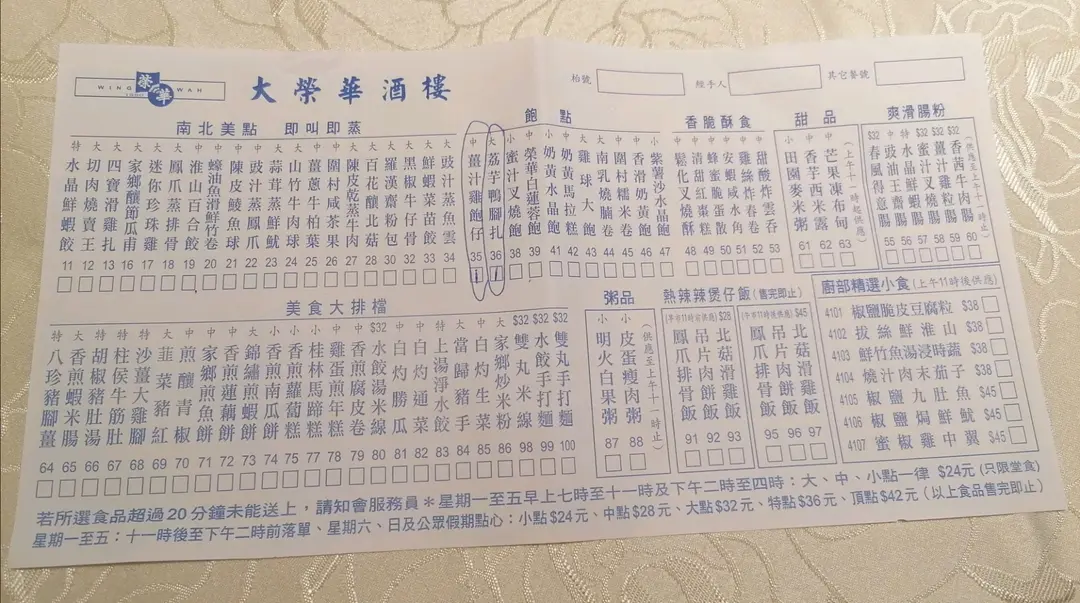 WING WAH
1950
榮華
大榮華酒樓
枱號
經手人
其它餐號
南北美點 即叫即蒸
特 水晶鮮蝦餃 11
大 切肉燒賣王 12
大 四寶滑雞扎 13
家鄉釀節瓜甫 16
大 迷你珍珠雞 17
中 鳳爪蒸排骨 18
中 淮山百合卷 19
蠔油魚滑鮮竹卷 20
中 陳皮鯪魚球 21
中 豉汁蒸鳳爪 22
中 蒜茸蒸鮮魷 23
小 山竹牛肉球 24
中 薑蔥牛柏葉 25
中 圍村咸茶果 26
陳皮乾蒸牛肉 27
大 百花釀北菇 28
大 羅漢齋粉包 30
大 黑椒牛仔骨 31
大 鮮蝦菜苗餃 33
大 豉汁蒸魚雲 34
飽點
中 薑汁雞飽仔 35 1
大 荔芋鴨腳扎 36 1
小 蜜汁叉燒飽 38
中 榮華白蓮蓉飽 39
中 奶黃水晶飽 41
中 奶黃馬拉糕 42
大 雞球大飽 43
大 南乳燒腩卷 44
中 圍村糯米卷 45
小 香滑奶黃飽 46
小 紫薯沙水晶飽 47
香脆酥食
中 鬆化叉燒酥 48
中 清甜紅棗糕 49
中 蜂蜜脆蛋散 50
中 安蝦咸水角 51
中 雞絲炸春卷 52
中 甜酸炸雲吞 53
甜品
小 田園麥米粥 61
中 香芋西米露 62
中 芒果凍布甸 63
(上午十一時起供應)
爽滑腸粉
$32 春風得意腸 55
中 豉油王腸 56
特 水晶鮮蝦腸 57
$32 蜜汁叉燒腸 58
$32 薑汁雞粒腸 59
$32 香茜牛肉腸 60
(供應至上午十一時止)
美食大排檔
特 八珍豬腳薑 64
大 香煎蝦米腸 65
特 胡椒豬肚湯 66
特 柱侯牛筋肚 67
特 沙薑大雞腳 68
大 韮菜豬紅 69
中 煎釀青椒 70
中 家鄉煎魚餅 71
中 香煎蓮藕餅 72
大 錦繡蝦瓜 73
小 香煎南瓜餅 74
小 香煎蘿蔔糕 75
小 桂林馬蹄糕 77
中 雞蛋煎年糕 78
中 香煎腐皮卷 79
$32 水餃湯米線 80
中 白灼勝瓜 81
中 白灼通菜 82
上湯淨水餃 83
大 當歸豬手 84
中 白灼生菜 85
大 家鄉炒米粉 94
$32 雙丸米線 98
$32 水餃手打麵 99
$32 雙丸手打麵 100
粥品
小 明火白果粥 87
小 皮蛋瘦肉粥 88
(供應至上午十一時止)
熱辣辣煲仔飯(售完即止)
(早市11時前供應) $28
鳳爪排骨飯 91
吊片肉餅飯 92
北菇滑雞飯 93
(午市11時後供應) $45
鳳爪排骨飯 95
吊片肉餅飯 96
北菇滑雞飯 97
廚部精選小食(上午11時後供應)
4101 椒鹽脆皮豆腐粒 $38
4102 拔絲鮮淮山 $38
4103 鮮竹魚湯浸時蔬 $38
4104 燒汁肉末茄子 $38
4105 椒鹽九肚魚 $45
4106 椒鹽焗鮮魷 $45
4107 蜜椒雞中翼 $45
若所選食品超過20分鐘未能送上，請知會服務員＊星期一至五早上七時至十一時及下午二時至四時：大、中、小點一律 $24元 (只限堂食)
星期一至五：十一時後至下午二時前落單、星期六、日及公眾假期點心：小點$24元、中點$28元、大點$32元、特點$36元、頂點$42元 (以上食品售完即止)